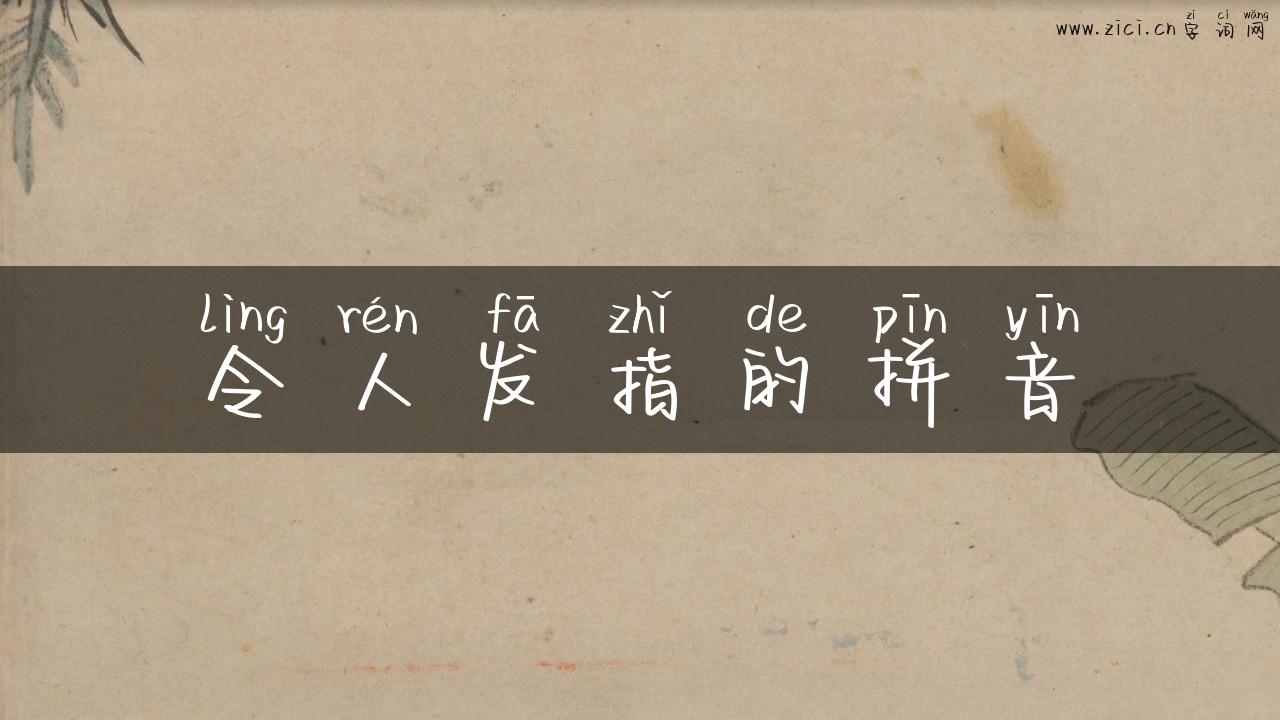 zì cí wǎng
www.zici.cn 字词网
lìng rén fā zhǐ de pīn yīn
令人发指的拼音